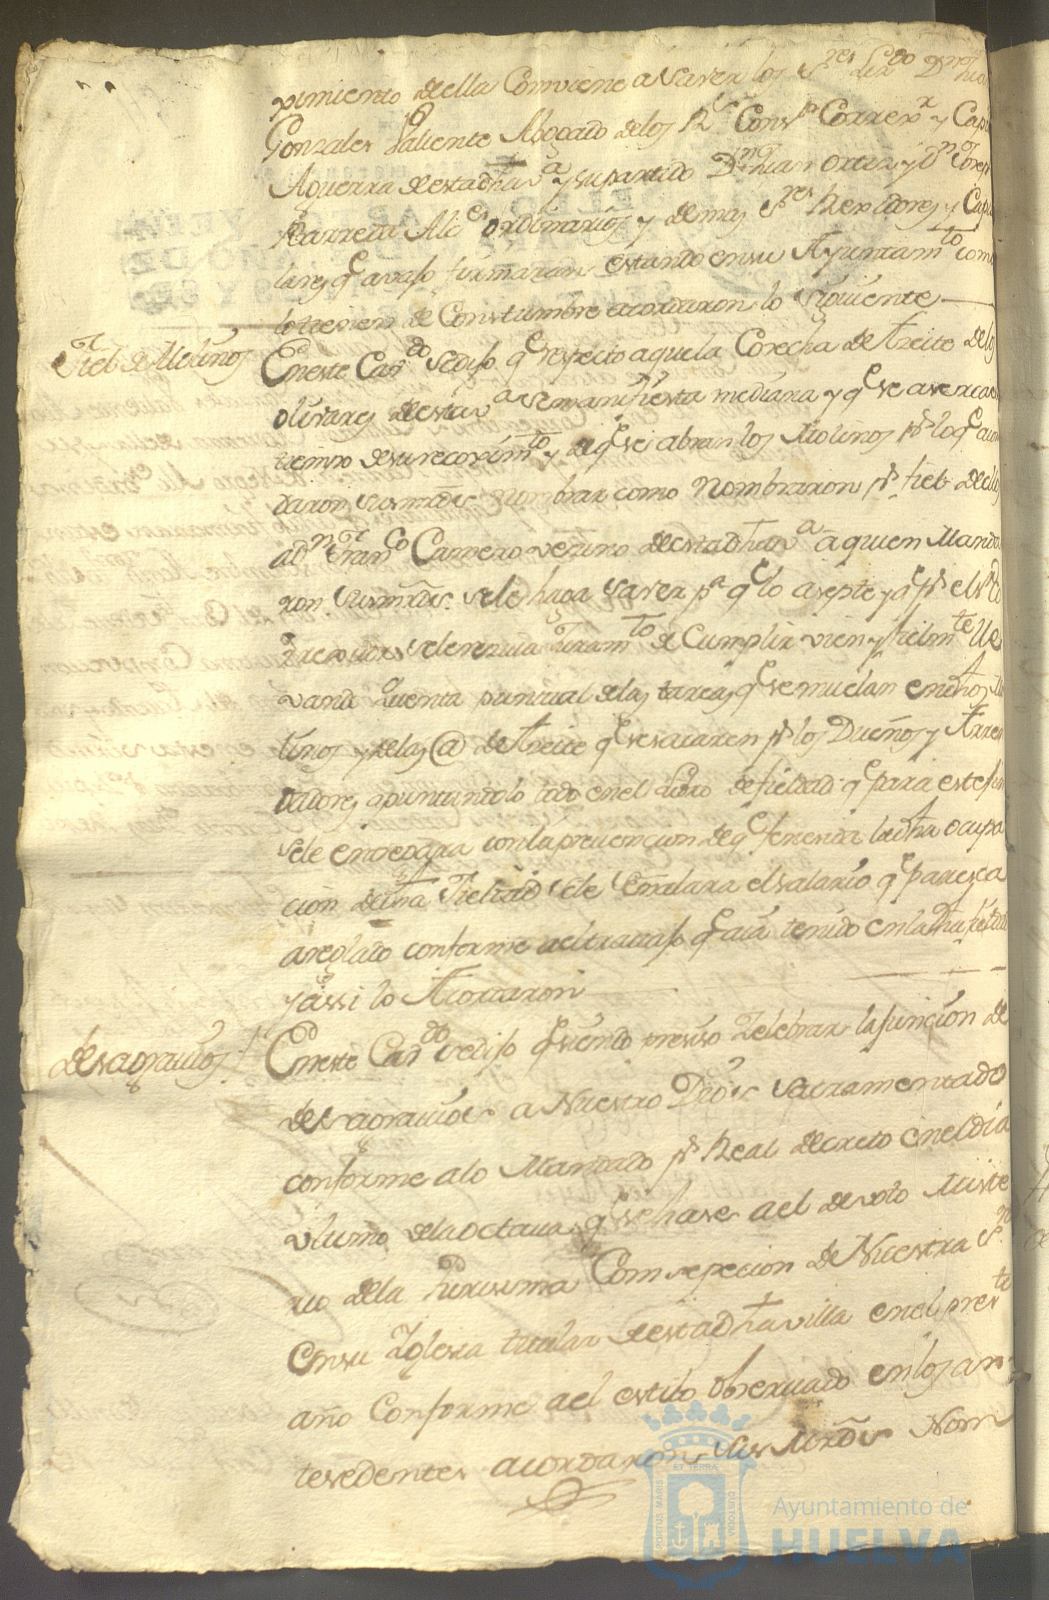 ximiento della Combiene a saver los S.res Lizdo Dn
Gonzales Valiente Abogado de los R.s Cons.s Correx.r y Capn
A guerra de esta dha va y su partido Dn Juan Ortiz y Dn
Barreda Alc.es ordinarios y demas S.res Rexidores y Capi
lares q avaso firmaran estando en su Ayuntam.to como
lo tienen de Constumbre acordaron lo Siguiente
Fiel de Molinos
En este Cav.do se dijo q respecto a que la Cosecha de Aseite de los
olivares de esta va se manifiesta mediana y q se aserca el
tiempo de su recoxim.to y de q se abran los Molinos pr lo q acor
daron sus mrds nombrar como Nombraron pr fiel de ellos
a Dn Fran.co Carrero vezino de esta dha va a quien Manda
ron sus mrds. se le haga saver pa q lo asepte y q pr el
se le reziva Juram.to de Cumplir vien y fielm.te lle
vando quenta puntual de las tareas q se muelan en dhos Mo
linos y de las @ de Aseite q se sacaren pr los Dueños y Arren
dadores apuntandolo todo en el libro de fieldad q para este fin
se le entregara con la prevencion de q fenesida la dha ocupa
cion de dha Fieldad se le Señalara el salario q paresca
areglado conforme a el travajo q aia tenido en la dha fieldad
y assi lo Acordaron
desagravios
En este Cav.do se dijo q siendo presiso Zelebrar la funcion de
desagravios a Nuestro Dios Sacramentado
conforme a lo Mandado pr Real decreto en el dia
vltimo de la octava q se hase a el devoto Miste
rio de la Purissima Comsepcion de Nuestra S.ra
en su Yglesia titular de esta dha villa en el pres.te
año Conforme a el estilo observado en los an
tesedentes acordaron sus Mrds Nom
PORTUS MARIS ET TERRÆ CUSTODIA
Ayuntamiento de
HUELVA